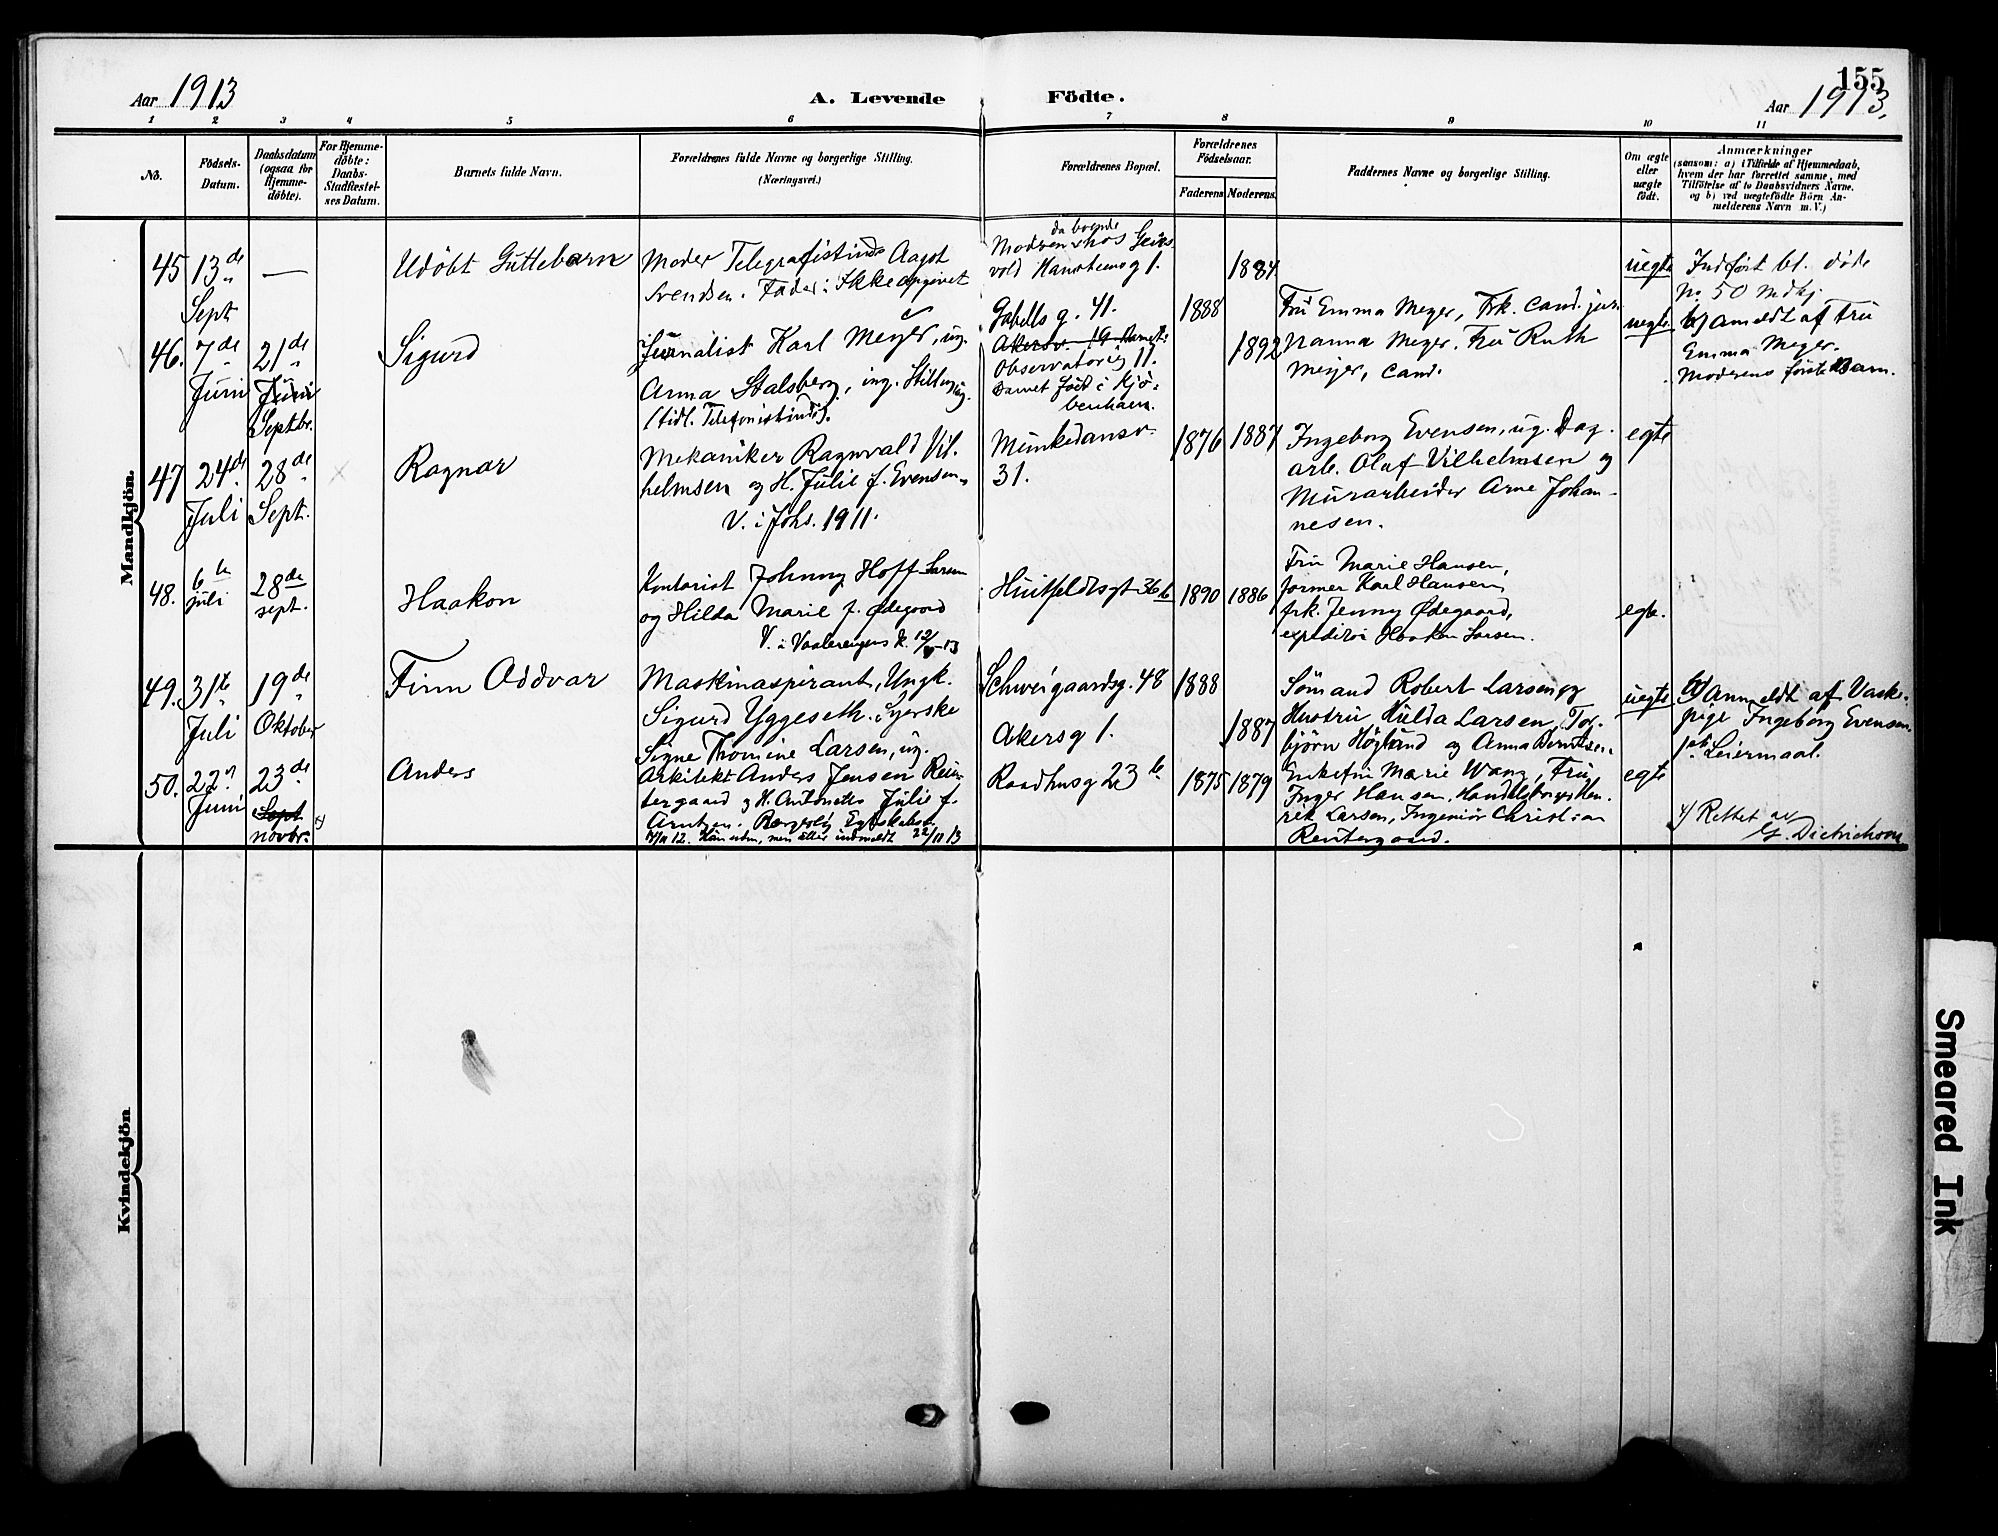 155
Aar 1913
A. Levende Födte.
Aar 1913.
1 2 3 4 5 6 7 8 9 10 11
No.
Födsels-
Datum.
Daabsdatum
(ogsaa for
Hjemme-
döbte).
For Hjemme-
döbte:
Daabs-
Stadfæstel-
ses Datum.
Barnets fulde Navn.
Forældrenes fulde Navne og borgerlige Stilling.
(Næringsvei.)
Forældrenes Bopæl.
Forældrenes
Födselsaar.
Faderens
Moderens.
Faddernes Navne og borgerlige Stilling.
Om ægte
eller
uægte
födt.
Anmærkninger
(saasom: a) i Tilfælde af Hjemmedaab,
hvem der har forrettet samme, med
Tilföielse af to Daabsvidners Navne,
og b) ved uægtefödte Börn An-
melderens Navn m. V.)
Mandkjön.
45
13de
Sept
—
Udöbt Guttebarn
Moder Telegrafistinde Aagot
Svendsen. Fader: Ikke opgivet
da boende
Modren hos
vold Hansteensg 1.
1884
uegte
Indfört bl. döde
No 50 mdkj.
46.
7de
Juni
21de
Juni
Septbr.
Sigurd
Journalist Karl Meyer, ug.
Anna Stalsberg, ing. Stilling, ug.
(tidl. Telefonistinde).
Gabels g. 41.
Akersv. 19
Observatorieg 11.
Barnet född i Kjö-
benhavn.
1888
1892
Fru Emma Meyer, Frk. Cand. jur.
Nanna Meyer, Fru Ruth
Meyer, Cand.
uegte
b) Anmeldt af Fru
Emma Meyer.
Moderens förste Barn.
47
24de
Juli
28de
Sept.
Ragnar
Mekaniker Ragnvald Vil-
helmsen og H. Julie f. Evensen.
V. i Johs. 1911.
Munkedamsv.
31.
1876
1887
Ingeborg Evensen, ug. Dag-
arb. Olaf Vilhelmsen og
Murarbeider Arne Johan-
nesen.
egte
48.
6te
juli
28de
sept.
Haakon
Kontorist Johnny Hoff Larsen
og Hilda Marie f. Ødegaard
V. i Vaalerengens k. 12/5 13
Huitfeldtsgt 36b
1890
1886
Fru Marie Hansen,
former Karl Hansen,
frk. Jenny Ødegaard,
expeditör Haakon Larsen.
egte.
49.
31te
Juli
19de
Oktober
Finn Oddvar
Maskinaspirant, Ungk.
Sigurd Yggeseth. Syerske
Signe Thomine Larsen, ug.
Schweigaardsg. 48
Akersg 1.
1888
1887
Sömand Robert Larsen og
Hustru Hulda Larsen, Tor-
björn Högland og Anna Berntsen.
uegte
b) Anmeldt af Vaske-
pige Ingeborg Evensen
1ste Leiermaal.
50.
22n
Juni
23de
Sept
novbr.
x)
Anders
Arkitekt Anders Jensen Rein-
tergaard og H. Antonette Julie f.
Arntzen. Borgerlig Egteskab
12. Han udm, men atter indmeldt 22/11 13
Raadhusg 23 b
1875
1879
Enkefru Marie Wang, Fru
Inger Hansen, Handelsborger Hen-
rik Larsen, Ingeniör Christian
Reintergaard.
egte
x) Rettet av
G. Dietrichson
Kvindekjön
Smeared Ink